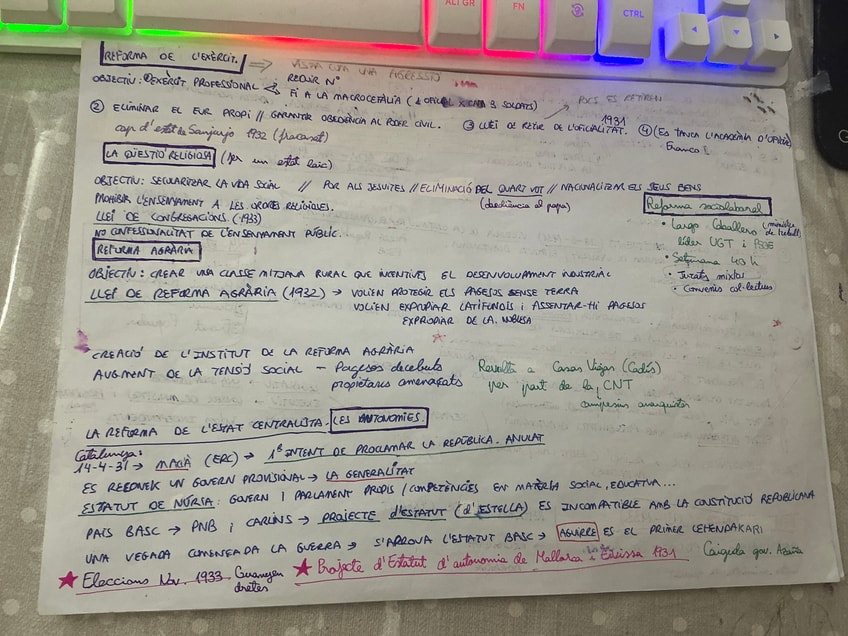 ALT GR
FN
CTRL
REFORMA DE L'EXÈRCIT. ⇒ VISTA COM UNA AGRESSIÓ
OBJECTIU: ① EXÈRCIT PROFESSIONAL
REDUIR Nº
FI A LA MACROCEFÀLIA (1 OFICIAL X CADA 3 SOLDATS)
POCS ES RETIREN
② ELIMINAR EL FUR PROPI // GARANTIR OBEDIÈNCIA AL PODER CIVIL. ③ LLEI DE RETIR DE L'OFICIALITAT. 1931 ④ (ES TANCA L'ACADÈMIA D'OFICIALS)
cop d'estat de Sanjurjo 1932 (fracassat)
Franco
LA QÜESTIÓ RELIGIOSA (per un estat laic)
OBJECTIU: SECULARITZAR LA VIDA SOCIAL // POR ALS JESUITES // ELIMINACIÓ DEL QUART VOT // NACIONALITZAR ELS SEUS BENS
(obediència al papa)
PROHIBIR L'ENSENYAMENT A LES ORDRES RELIGIOSES.
LLEI DE CONGREGACIONS. (1933)
NO CONFESSIONALITAT DE L'ENSENYAMENT PÚBLIC.
Reforma sociolaboral
• Largo Caballero (ministre de treball)
líder UGT i PSOE
• Setmana 40 h
• Jurats mixtos
• Convenis col·lectius
REFORMA AGRÀRIA
OBJECTIU: CREAR UNA CLASSE MITJANA RURAL QUE INCENTIVÉS EL DESENVOLUPAMENT INDUSTRIAL
LLEI DE REFORMA AGRÀRIA (1932) → VOLIEN PROTEGIR ELS PAGESOS SENSE TERRA
VOLIEN EXPROPIAR LATIFUNDIS I ASSENTAR-HI PAGESOS
EXPROPIAR DE LA NOBLESA
CREACIÓ DE L'INSTITUT DE LA REFORMA AGRÀRIA
AUGMENT DE LA TENSIÓ SOCIAL - Pagesos decebuts
propietaris amenaçats
Revolta a Casas Viejas (Cadis)
per part de la CNT
campesins anarquistes
LA REFORMA DE L'ESTAT CENTRALISTA. LES AUTONOMIES.
Catalunya:
14-4-31 → MACIÀ (ERC) → 1r INTENT DE PROCLAMAR LA REPÚBLICA. ANULAT
ES REDONEIX UN GOVERN PROVISIONAL → LA GENERALITAT
ESTATUT DE NÚRIA: GOVERN I PARLAMENT PROPIS / COMPETÈNCIES EN MATÈRIA SOCIAL, EDUCATIVA...
PAÍS BASC → PNB i CARLINS → PROJECTE d'ESTATUT (d'ESTELLA) ES INCOMPATIBLE AMB LA CONSTITUCIÓ REPUBLICANA
UNA VEGADA COMENÇADA LA GUERRA → S'APROVA L'ESTATUT BASC → AGUIRRE ES EL PRIMER LEHENDAKARI
★ Eleccions Nov. 1933 Guanyen dretes
★ Projecte d'Estatut d'autonomia de Mallorca i Eivissa 1931
Caiguda gov. Azaña